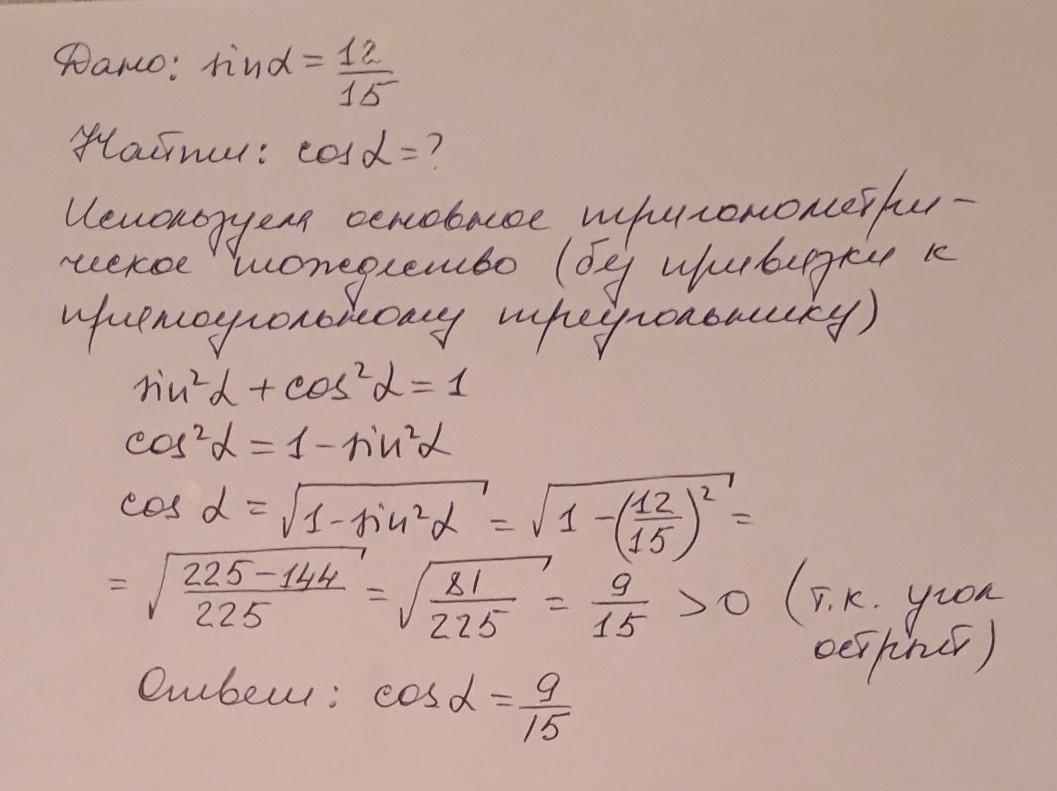 Дано: sinα = 12/15
Найти: cosα = ?
Используем основное тригонометри-
ческое тождество (без привязки к
прямоугольному треугольнику)
sin²α + cos²α = 1
cos²α = 1 - sin²α
cos α = √(1 - sin²α) = √(1 - (12/15)²) =
= √((225 - 144)/225) = √(81/225) = 9/15 > 0 (т.к. угол
острый)
Ответ: cosα = 9/15